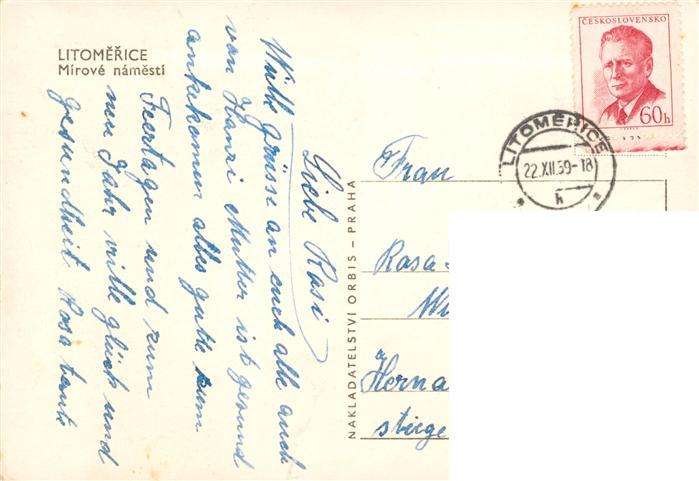 LITOMĚŘICE
Mírové náměstí
Liebe Rasi
Ville Grüsse an euch alle auch
von Hanzi Mutter ist gesund
ankekomen alles gutte zum
Feertagen und zum
neu Jahr ville glück und
gesundheit Rosa tante
NAKLADATELSTVÍ ORBIS – PRAHA
ČESKOSLOVENSKO
60h
LITOMĚŘICE
22.XII.59-18
h
Frau
Rasa
Herna
stiege